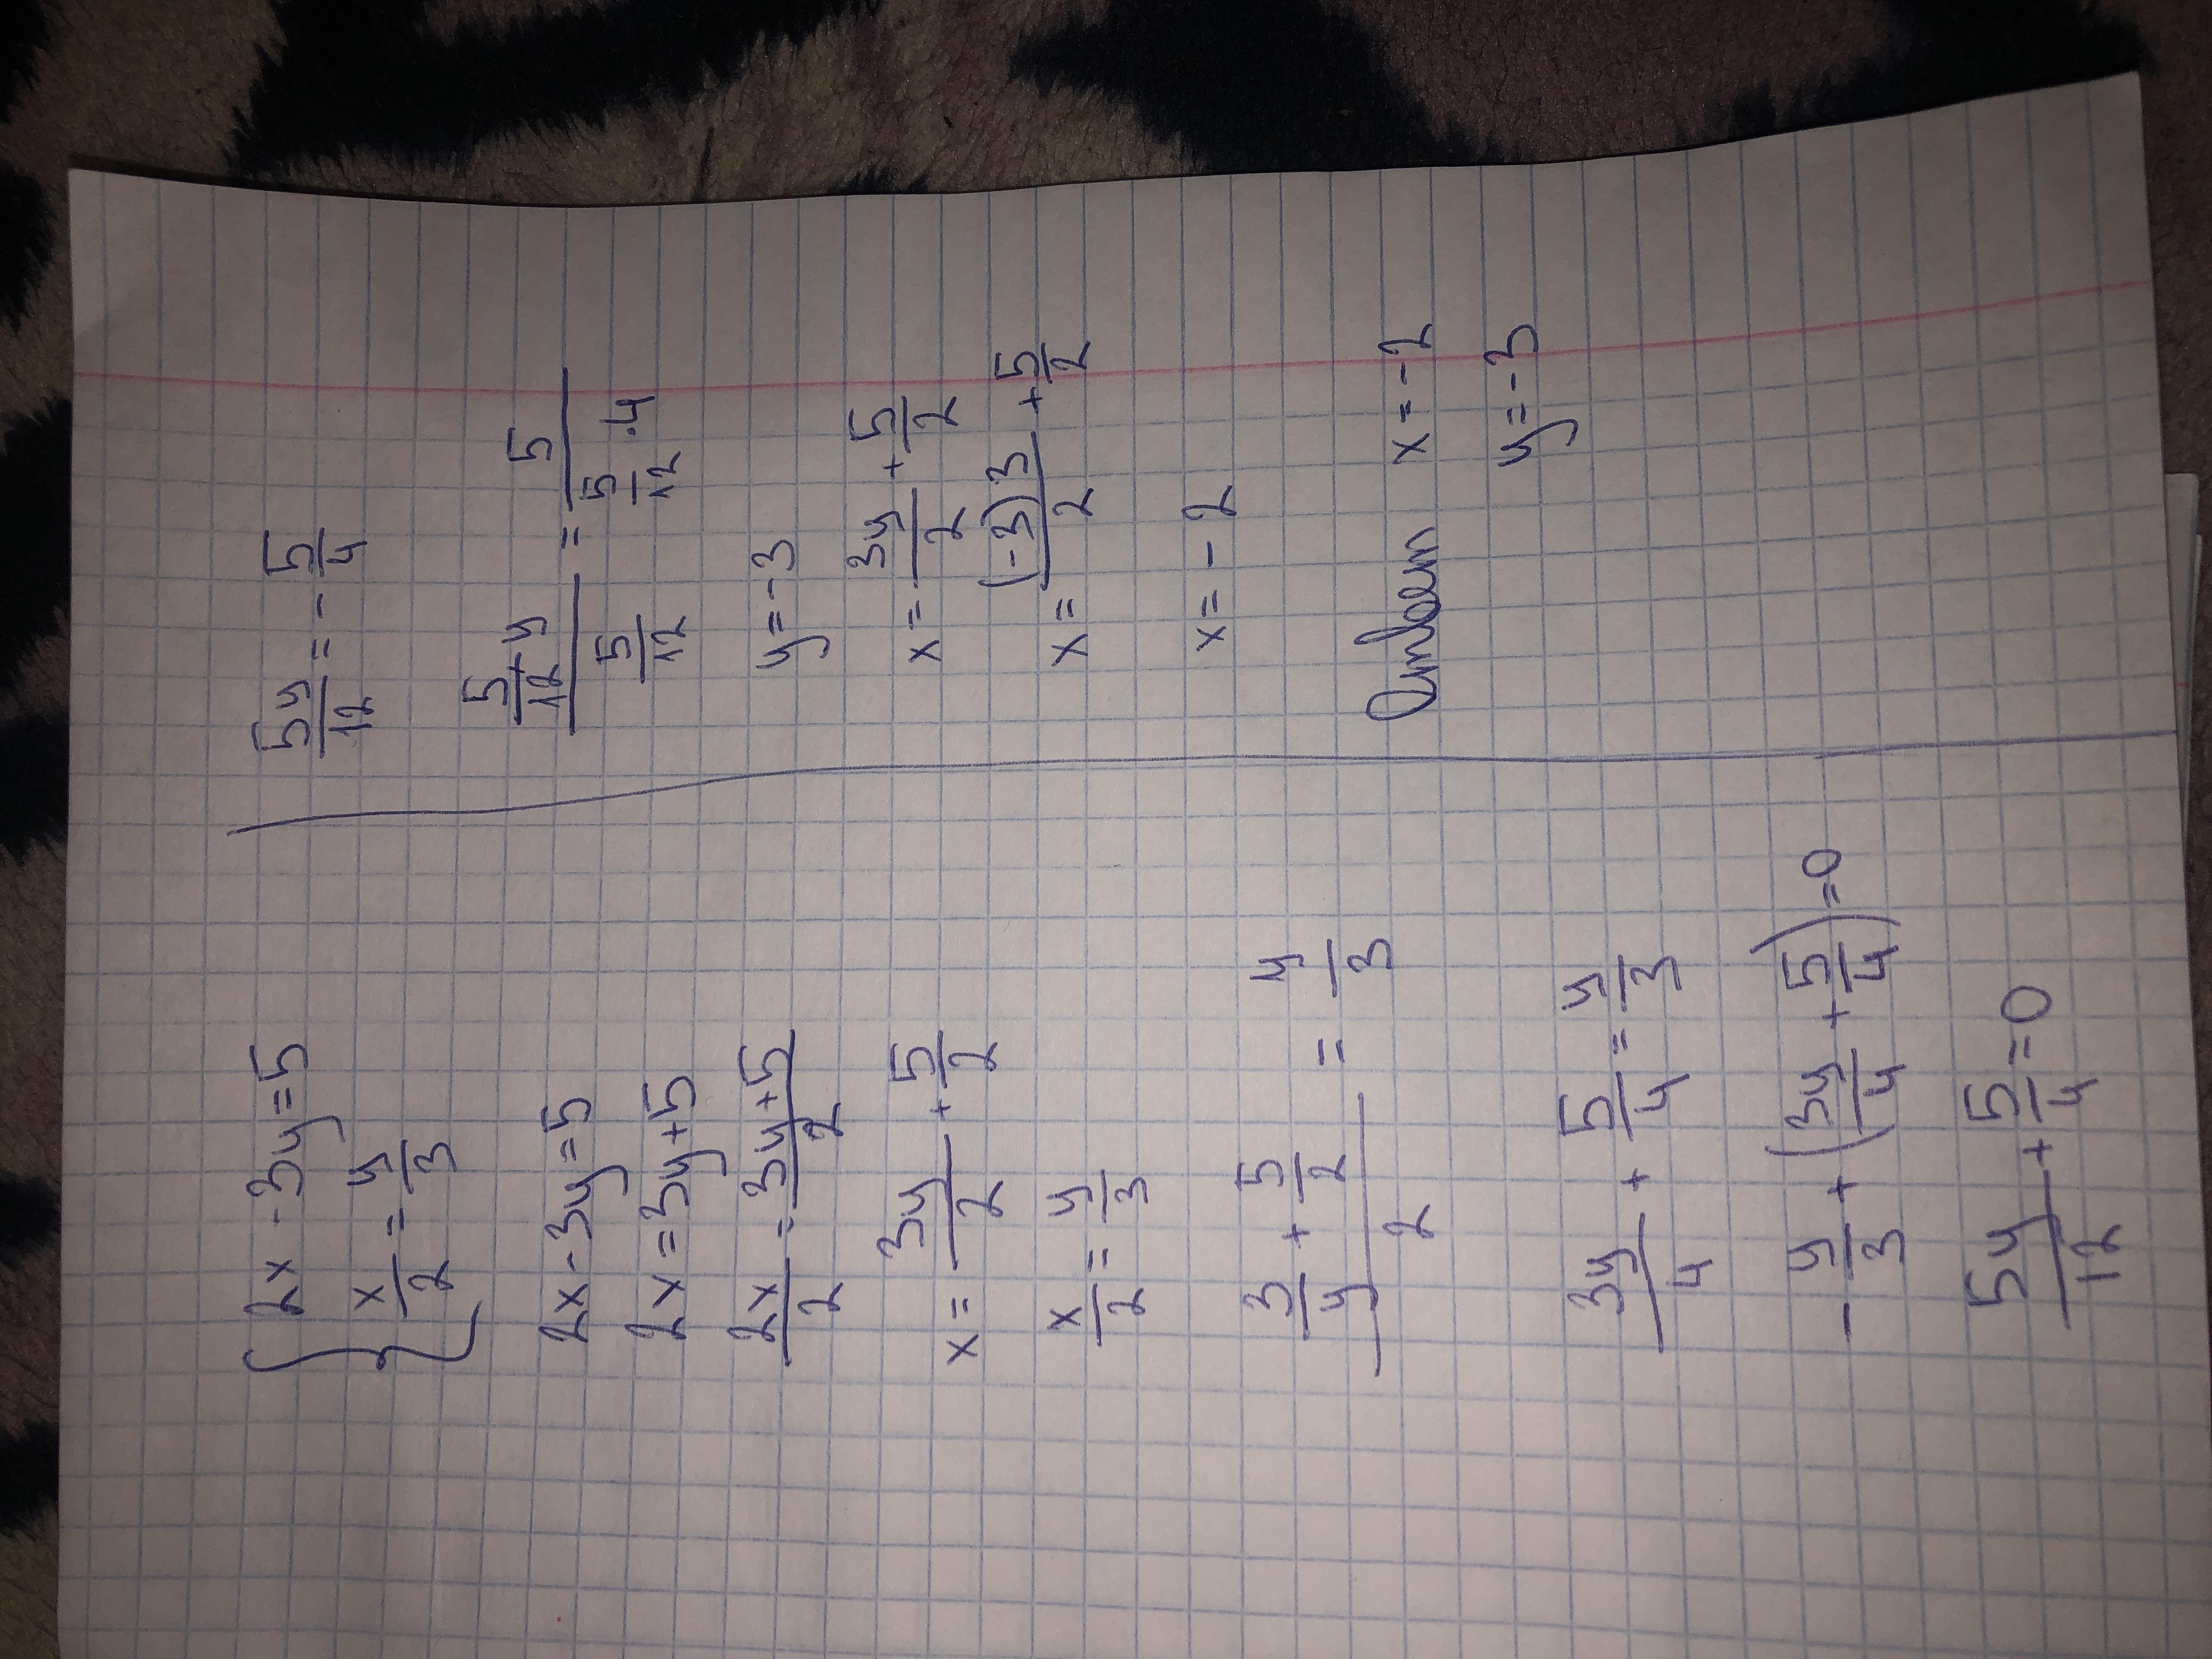 2x - 3y = 5
x/2 = y/3
2x - 3y = 5
2x = 3y + 5
2x/2 = 3y+5/2
x = 3y/2 + 5/2
x/2 = y/3
3/y + 5/2 / 2 = y/3
3y/4 + 5/4 = y/3
- y/3 + (3y/4 + 5/4) = 0
5y/12 + 5/4 = 0
5y/12 = - 5/4
5/12 y / 5/12 = 5 / 5/12 · 4
y = -3
x = 3y/2 + 5/2
x = (-3) 3/2 + 5/2
x = - 2
Ответ x = -2
y = -3